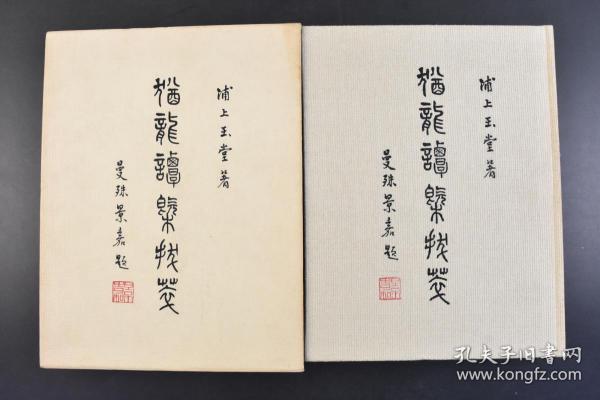 浦上玉堂著
猶龍譚槩
曼殊景嘉題
浦上玉堂著
猶龍譚槩
曼殊景嘉題
孔夫子旧书网
www.kongfz.com